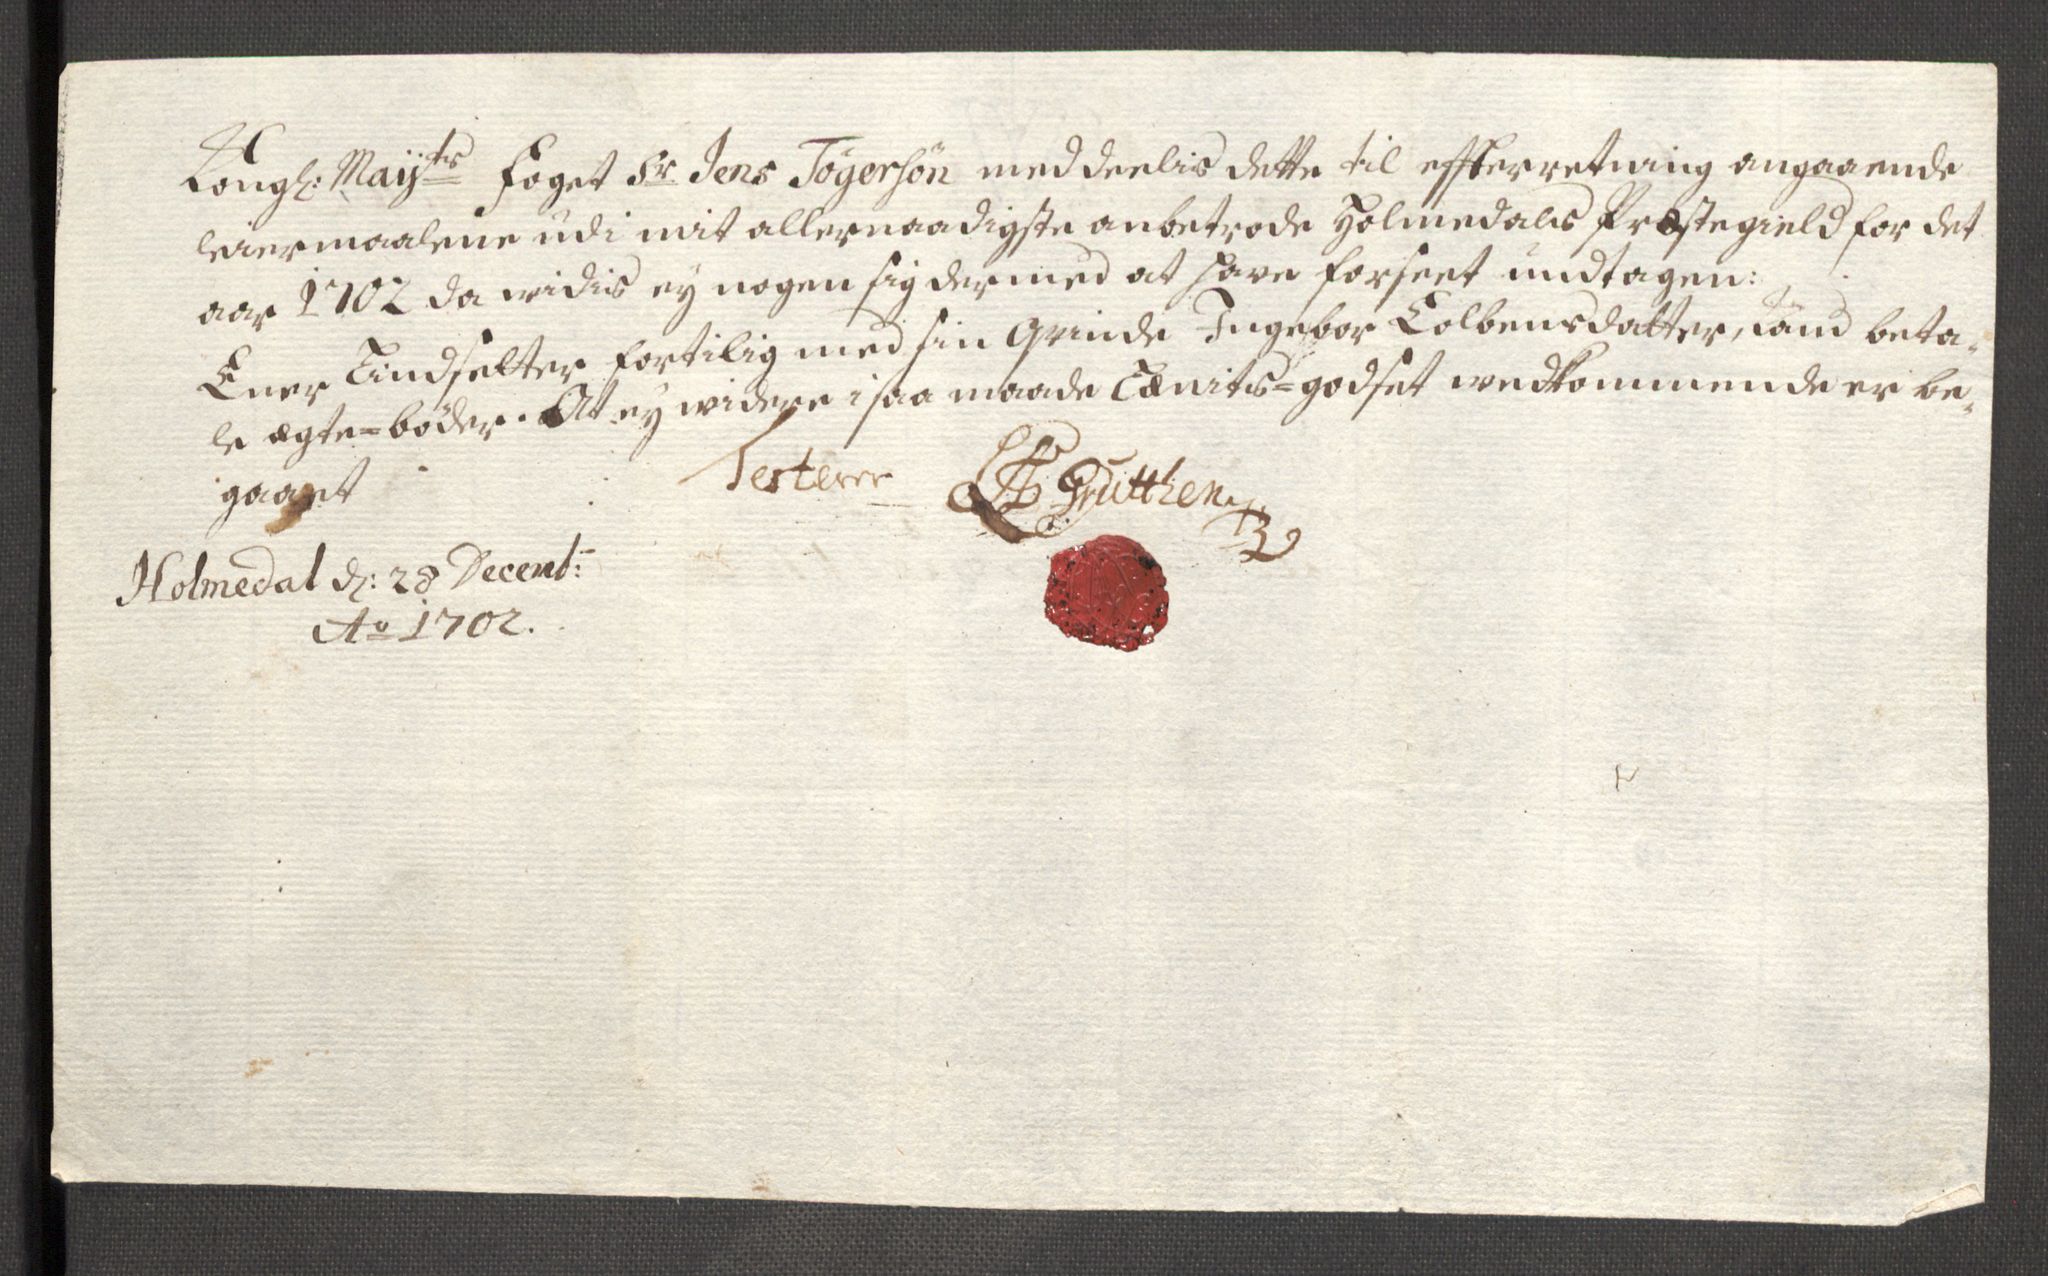 Kongl: Mayts foget Sr Jens Tögersön meddeelis dette til effterretning angaaende
leiermaalene udi mit allernaadigste anbetrode Holmedals Præstegield for det
aar 1702 da vidis ey nogen sig dermed at have forseet undtagen:
Ener Tindfelter fortilig med sin qvinde Ingebor Colbensdatter, beta-
le ægte=böder. At ey widere i saa maade =godset wedkommende er be-
gaaet
Testerer
Holmedal d: 28 Decemb:
Ao 1702.